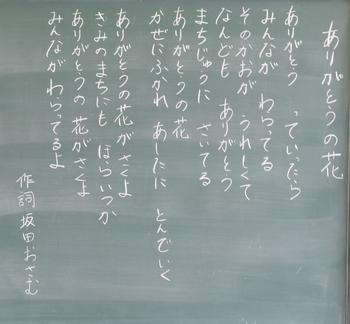 ありがとうの花
ありがとう　っていったら
みんなが　わらってる
そのかおが　うれしくて
なんども　ありがとう
まちじゅうに　さいてる
ありがとうの花
かぜにふかれ　あしたに　とんでいく
ありがとうの花がさくよ
きみのまちにも　ほらいつか
ありがとうの　花がさくよ
みんながわらってるよ
作詞　坂田おさむ